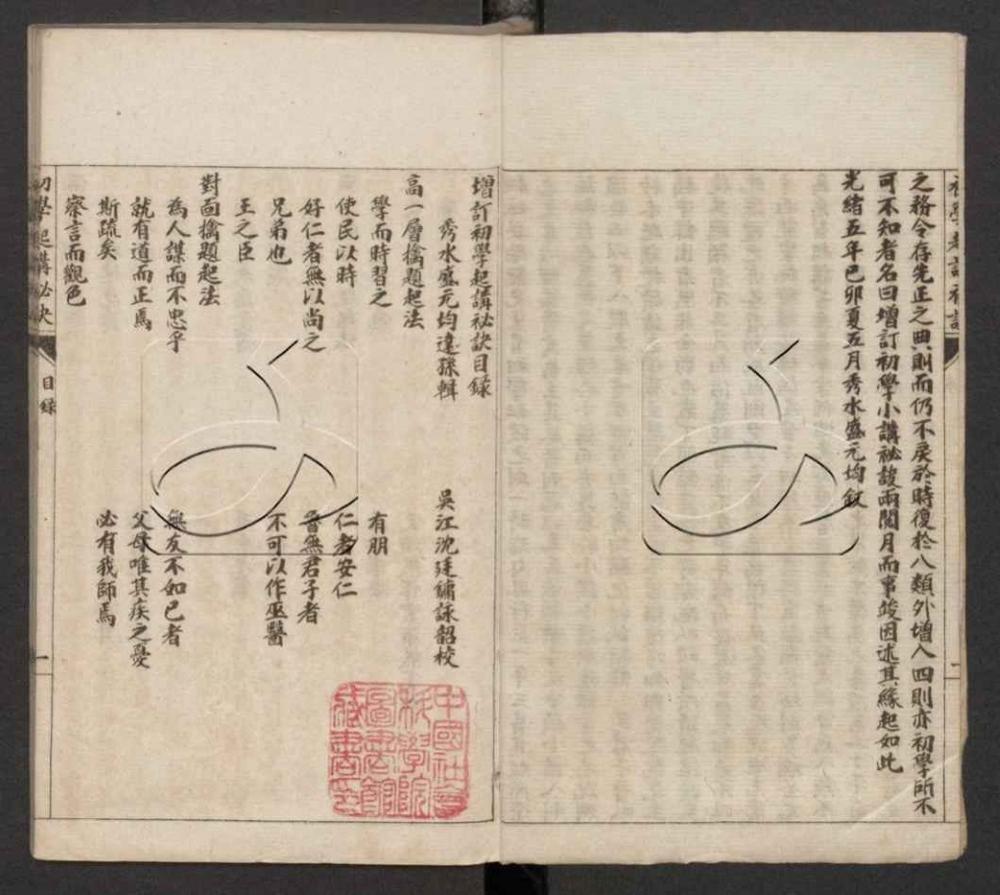 之務令存先正之典則而仍不戾於時復於八類外增入四則亦初學所不
可不知者名曰增訂初學小講祕訣兩閱月而事竣因述其緣起如此
光緒五年己卯夏五月秀水盛元均敘
增訂初學起講祕訣目錄
秀水盛元均遠孫輯
吳江沈廷鏞詠韶校
高一層擒題起法
學而時習之
有朋
使民以時
仁者安仁
好仁者無以尚之
魯無君子者
兄弟也
不可以作巫醫
王之臣
對面擒題起法
為人謀而不忠乎
無友不如己者
就有道而正焉
父母唯其疾之憂
斯疏矣
必有我師焉
察言而觀色
初學起講祕訣
目錄
一
中國社會科學院圖書館藏書印